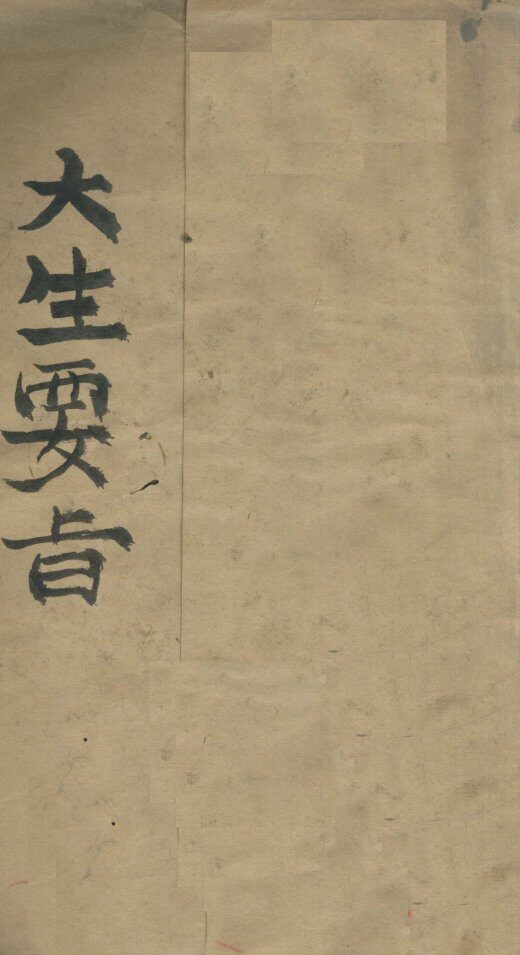 大生要旨